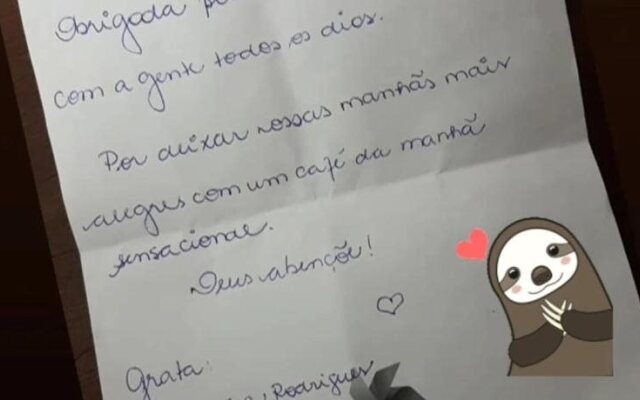 Obrigada
com a gente todos os dias.
Por deixar nossas manhãs mais
alegres com um café da manhã
sensacional.
Deus abençõe!
Grata:
Rodrigues